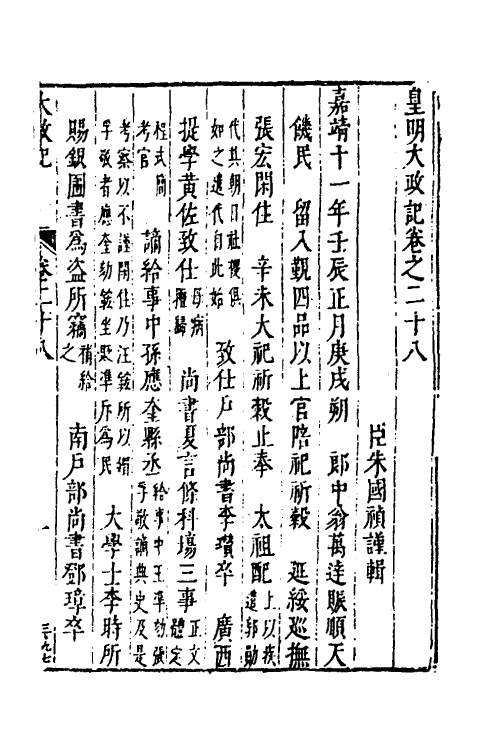 皇明大政記卷之二十八
臣朱國禎謹輯
嘉靖十一年壬辰正月庚戌朔　郎中翁萬達賑順天
饑民　留入覲四品以上官陪祀祈穀　延綏巡撫
張宏閑住　辛未大祀祈穀止奉　太祖配上以疾遣郭勛
代其朝日社稷俱如之遣代自此始　致仕戶部尚書李瓚卒　廣西
提學黃佐致仕母病擅歸　尚書夏言條科場三事正文體定
程式簡考官　謫給事中孫應奎縣丞給事中王準劾張孚敬謫典史及是
考察以不謹閑住乃汪鋐所以媚孚敬者應奎劾鋐坐貶準斥為民　大學士李時所
賜銀圖書為盜所竊補給之　南戶部尚書鄧璋卒
大政記　卷二十八　一
三九七